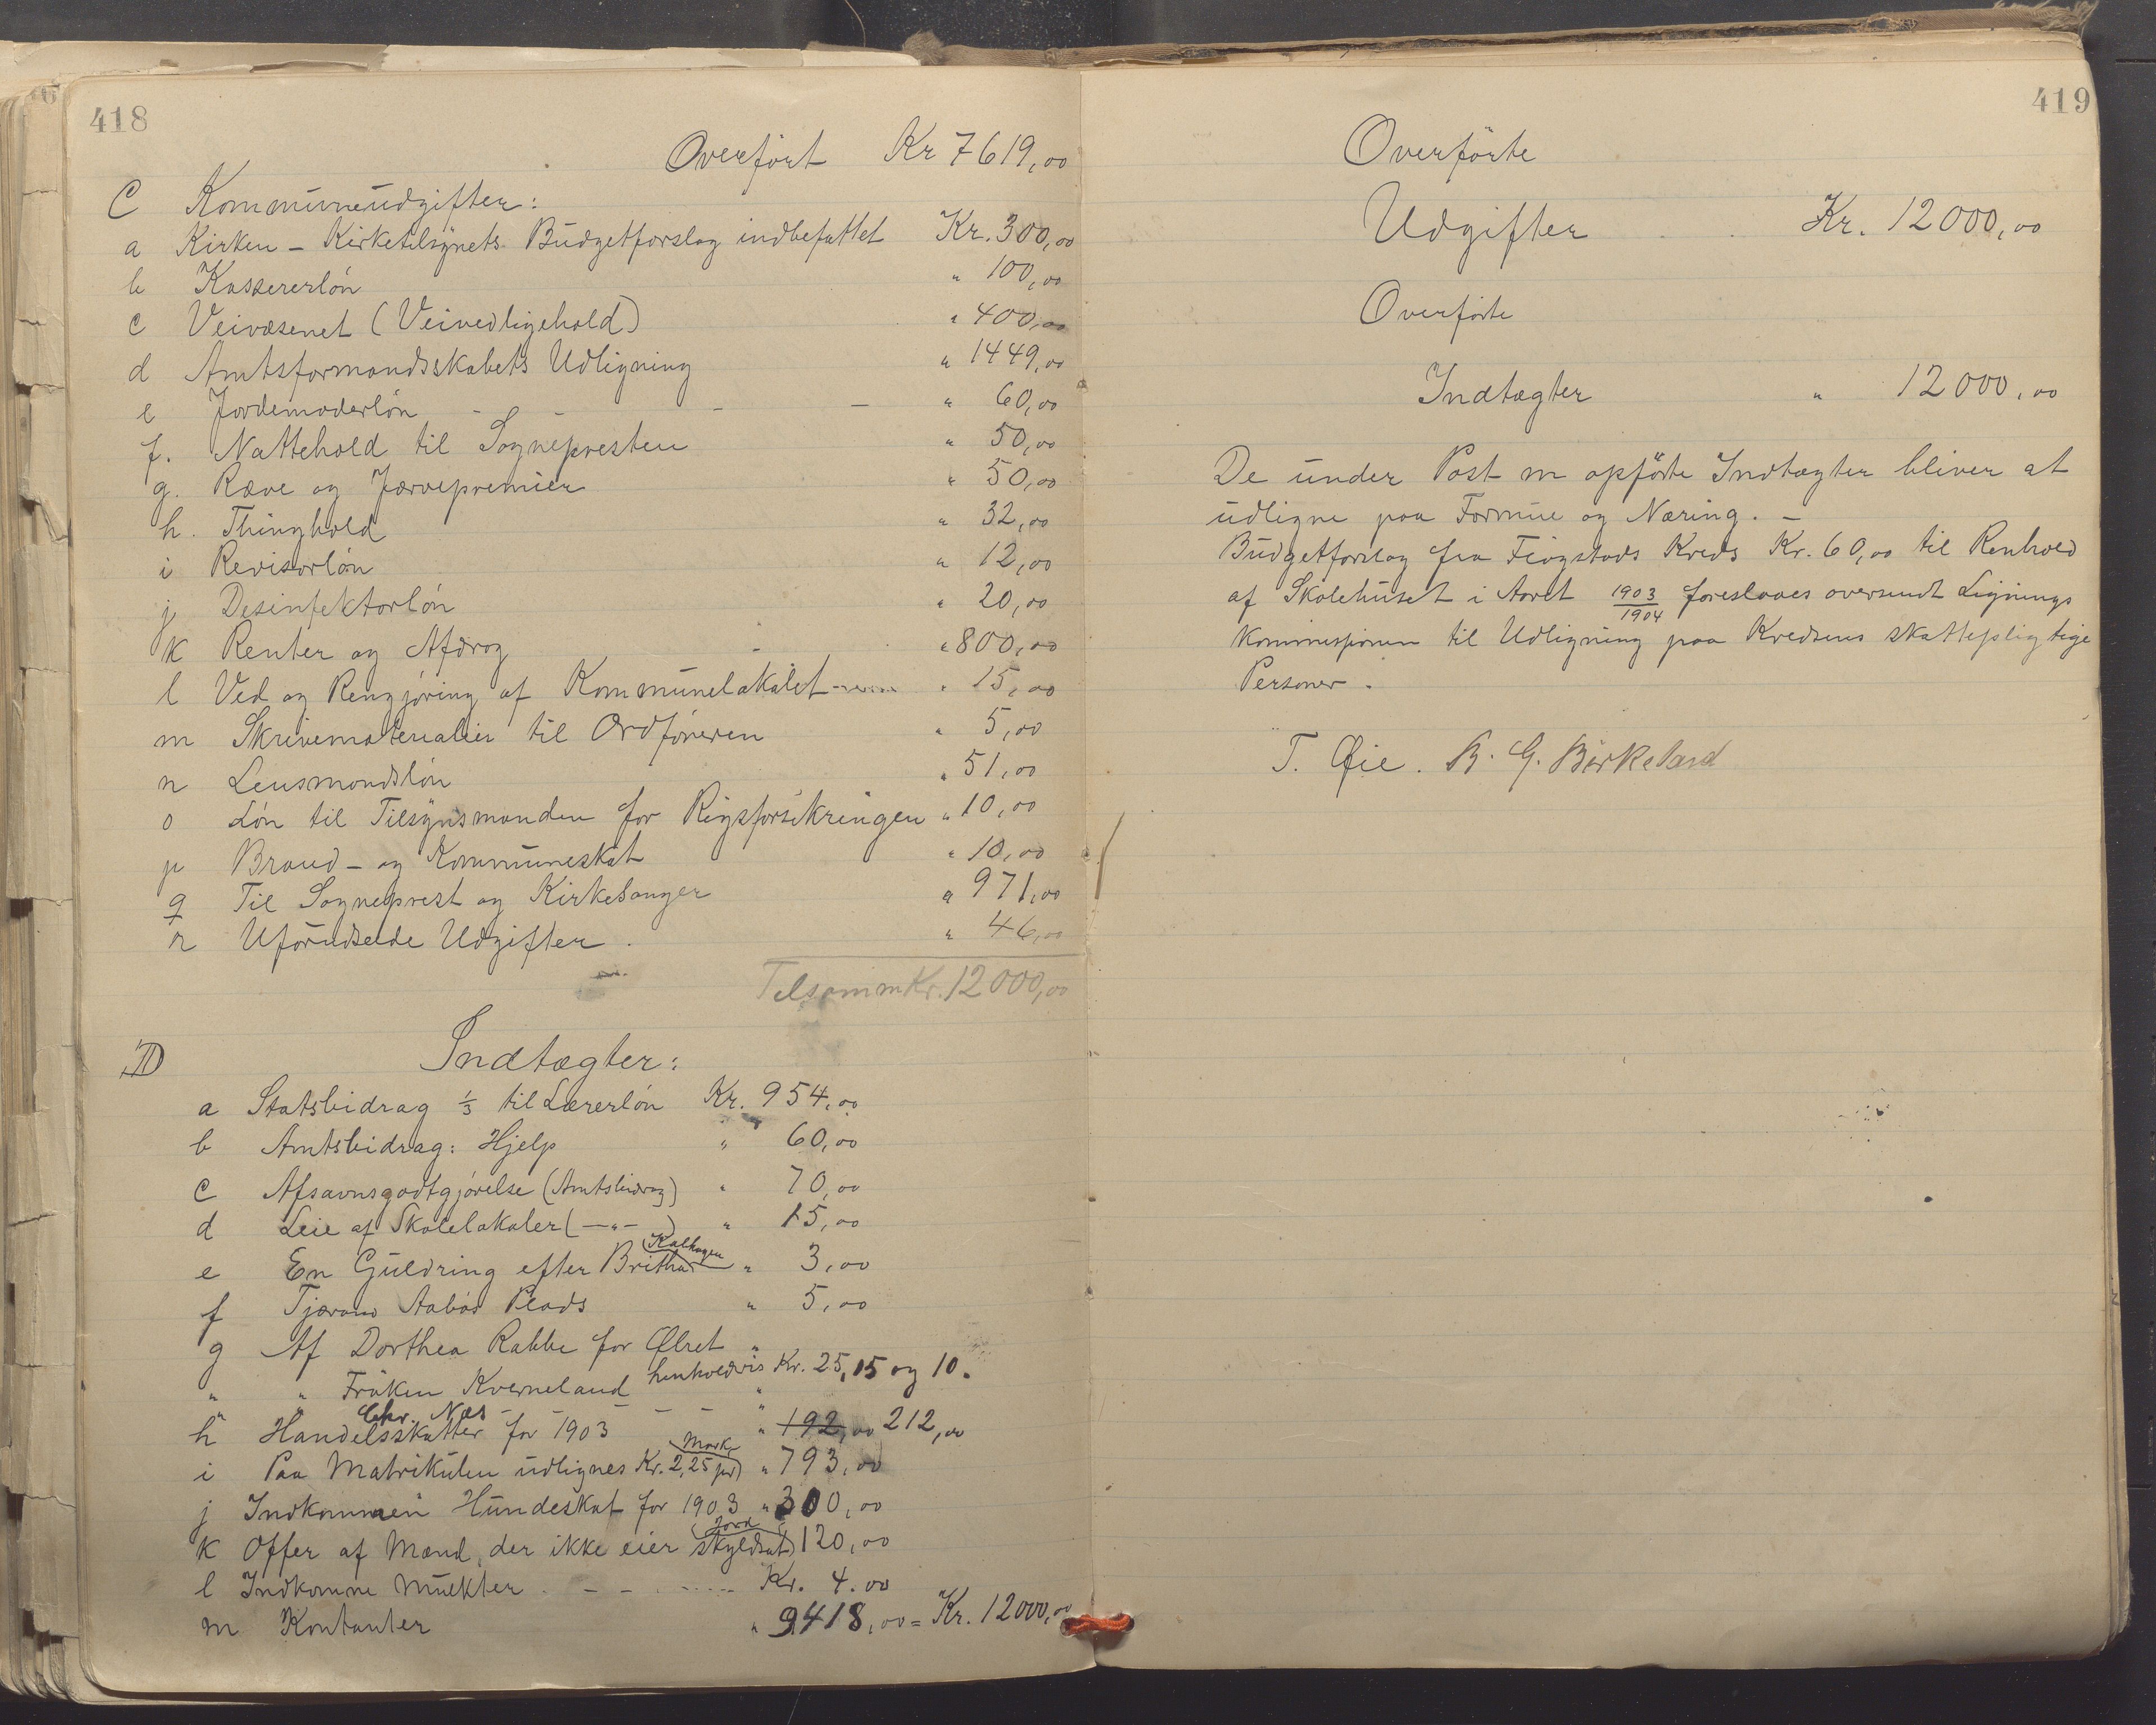 418
Overført Kr 7619,00
C Kommuneudgifter:
a Kirken – Kirketilsynets Budgetforslag indbefattet Kr. 300,00
b Kassererløn " 100,00
c Veivæsenet (Veivedligehold) " 400,00
d Amtsformandsskabets Udligning " 1449,00
e Jordemoderløn - - - - " 60,00
f. Nattehold til Sognepresten " 50,00
g. Ræve og Jærvepremier " 50,00
h. Thinghold " 32,00
i Revisorløn " 12,00
j Desinfektorløn " 20,00
k Renter og Afdrag - " 800,00
l Ved og Rengjøring af Kommunelokalet " 15,00
m Skrivematerialier til Ordføreren " 5,00
n Lensmondsløn " 51,00
o Løn til Tilsynsmanden for Rigsforsikringen " 10,00
p Brand- og Kommuneskat " 10,00
q Til Sogneprest og Kirkesanger " 971,00
r Uforudseede Udgifter. " 46,00
Tilsamm Kr. 12000,00
D Indtægter:
a Statsbidrag 1/3 til Lærerløn Kr. 954,00
b Amtsbidrag: Hjelp " 60,00
c Afsavnsgodtgjørelse (Amtsbidrag) " 70,00
d Leie af Skolelokaler (—"—) " 15,00
Kalhagen
e En Guldring efter Britha " 3,00
f Tjærand Aabøs Plads " 5,00
g Af Dorthea Rabbe for Ølret "
" " Frøken Kverneland henholdvis Kr. 25,15 og 10.
" Chr. Næs - - - - "
h Handelsskatter for 1903 " 192,00 212,00
Mark
i Paa Matrikulen udlignes Kr. 2,25 pr) " 793,00
j Indkommen Hundeskat for 1903 " 300,00
Jord
k Offer af Mænd, der ikke eier skyldsat) 120,00
l Indkomne Mulkter - - - Kr. 4.00
m Kontanter " 9418,00 = Kr. 12000,00
419
Overførte
Udgifter Kr. 12000,00
Overførte
Indtægter " 12000,00
De under Post m opførte Indtægter bliver at
udligne paa Formue og Næring. –
Budgetforslag fra Fiogstads Kreds Kr. 60,00 til Renhold
af Skolehuset i Aaret 1903/1904 foreslaaes oversendt Lignings
kommissionen til Udligning paa Kredsens skattepligtige
Personer.
T. Øie. B. G. Birkeland